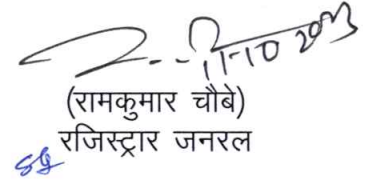 11-10 2023
(रामकुमार चौबे)
रजिस्ट्रार जनरल